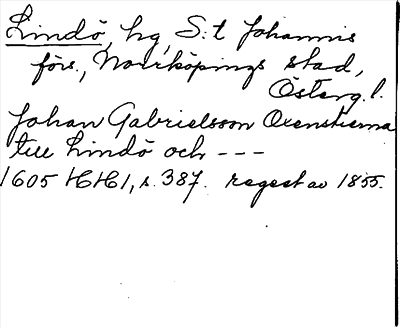 Lindö, hg, S:t Johannis
förs., Norrköpings stad,
Österg. l.
Johan Gabrielsson Oxenstierna
till Lindö och - - -
1605 HH1, s. 387. regest av 1855.